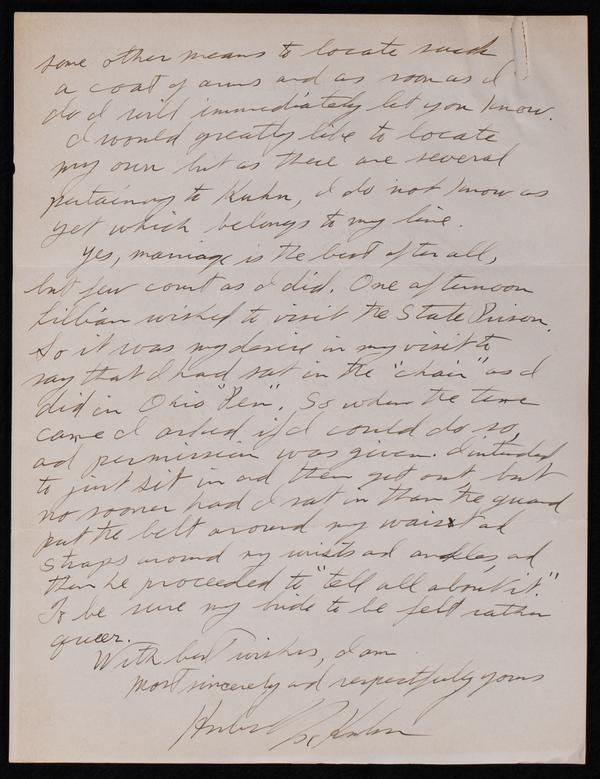 some other means to locate such
a coat of arms and as soon as I
do I will immediately let you know.
I would greatly like to locate
my own but as there are several
pertaining to Kuhn, I do not know as
yet which belongs to my line.
Yes, marriage is the best after all,
but few court as I did. One afternoon
Lillian wished to visit the State Prison.
So it was my desire in my visit to
say that I had sat in the "chair" as I
did in Ohio "Pen". So when the time
came I asked if I could do so,
ad permission was given. I intended
to just sit in ad then get out but
no sooner had I sat in than the guard
put the belt around my waist ad
straps around my wrists ad ankles, ad
then he proceeded to "tell all about it."
To be sure my bride to be felt rather
queer.
With best wishes, I am
most sincerely ad respectfully yours
Kuhn